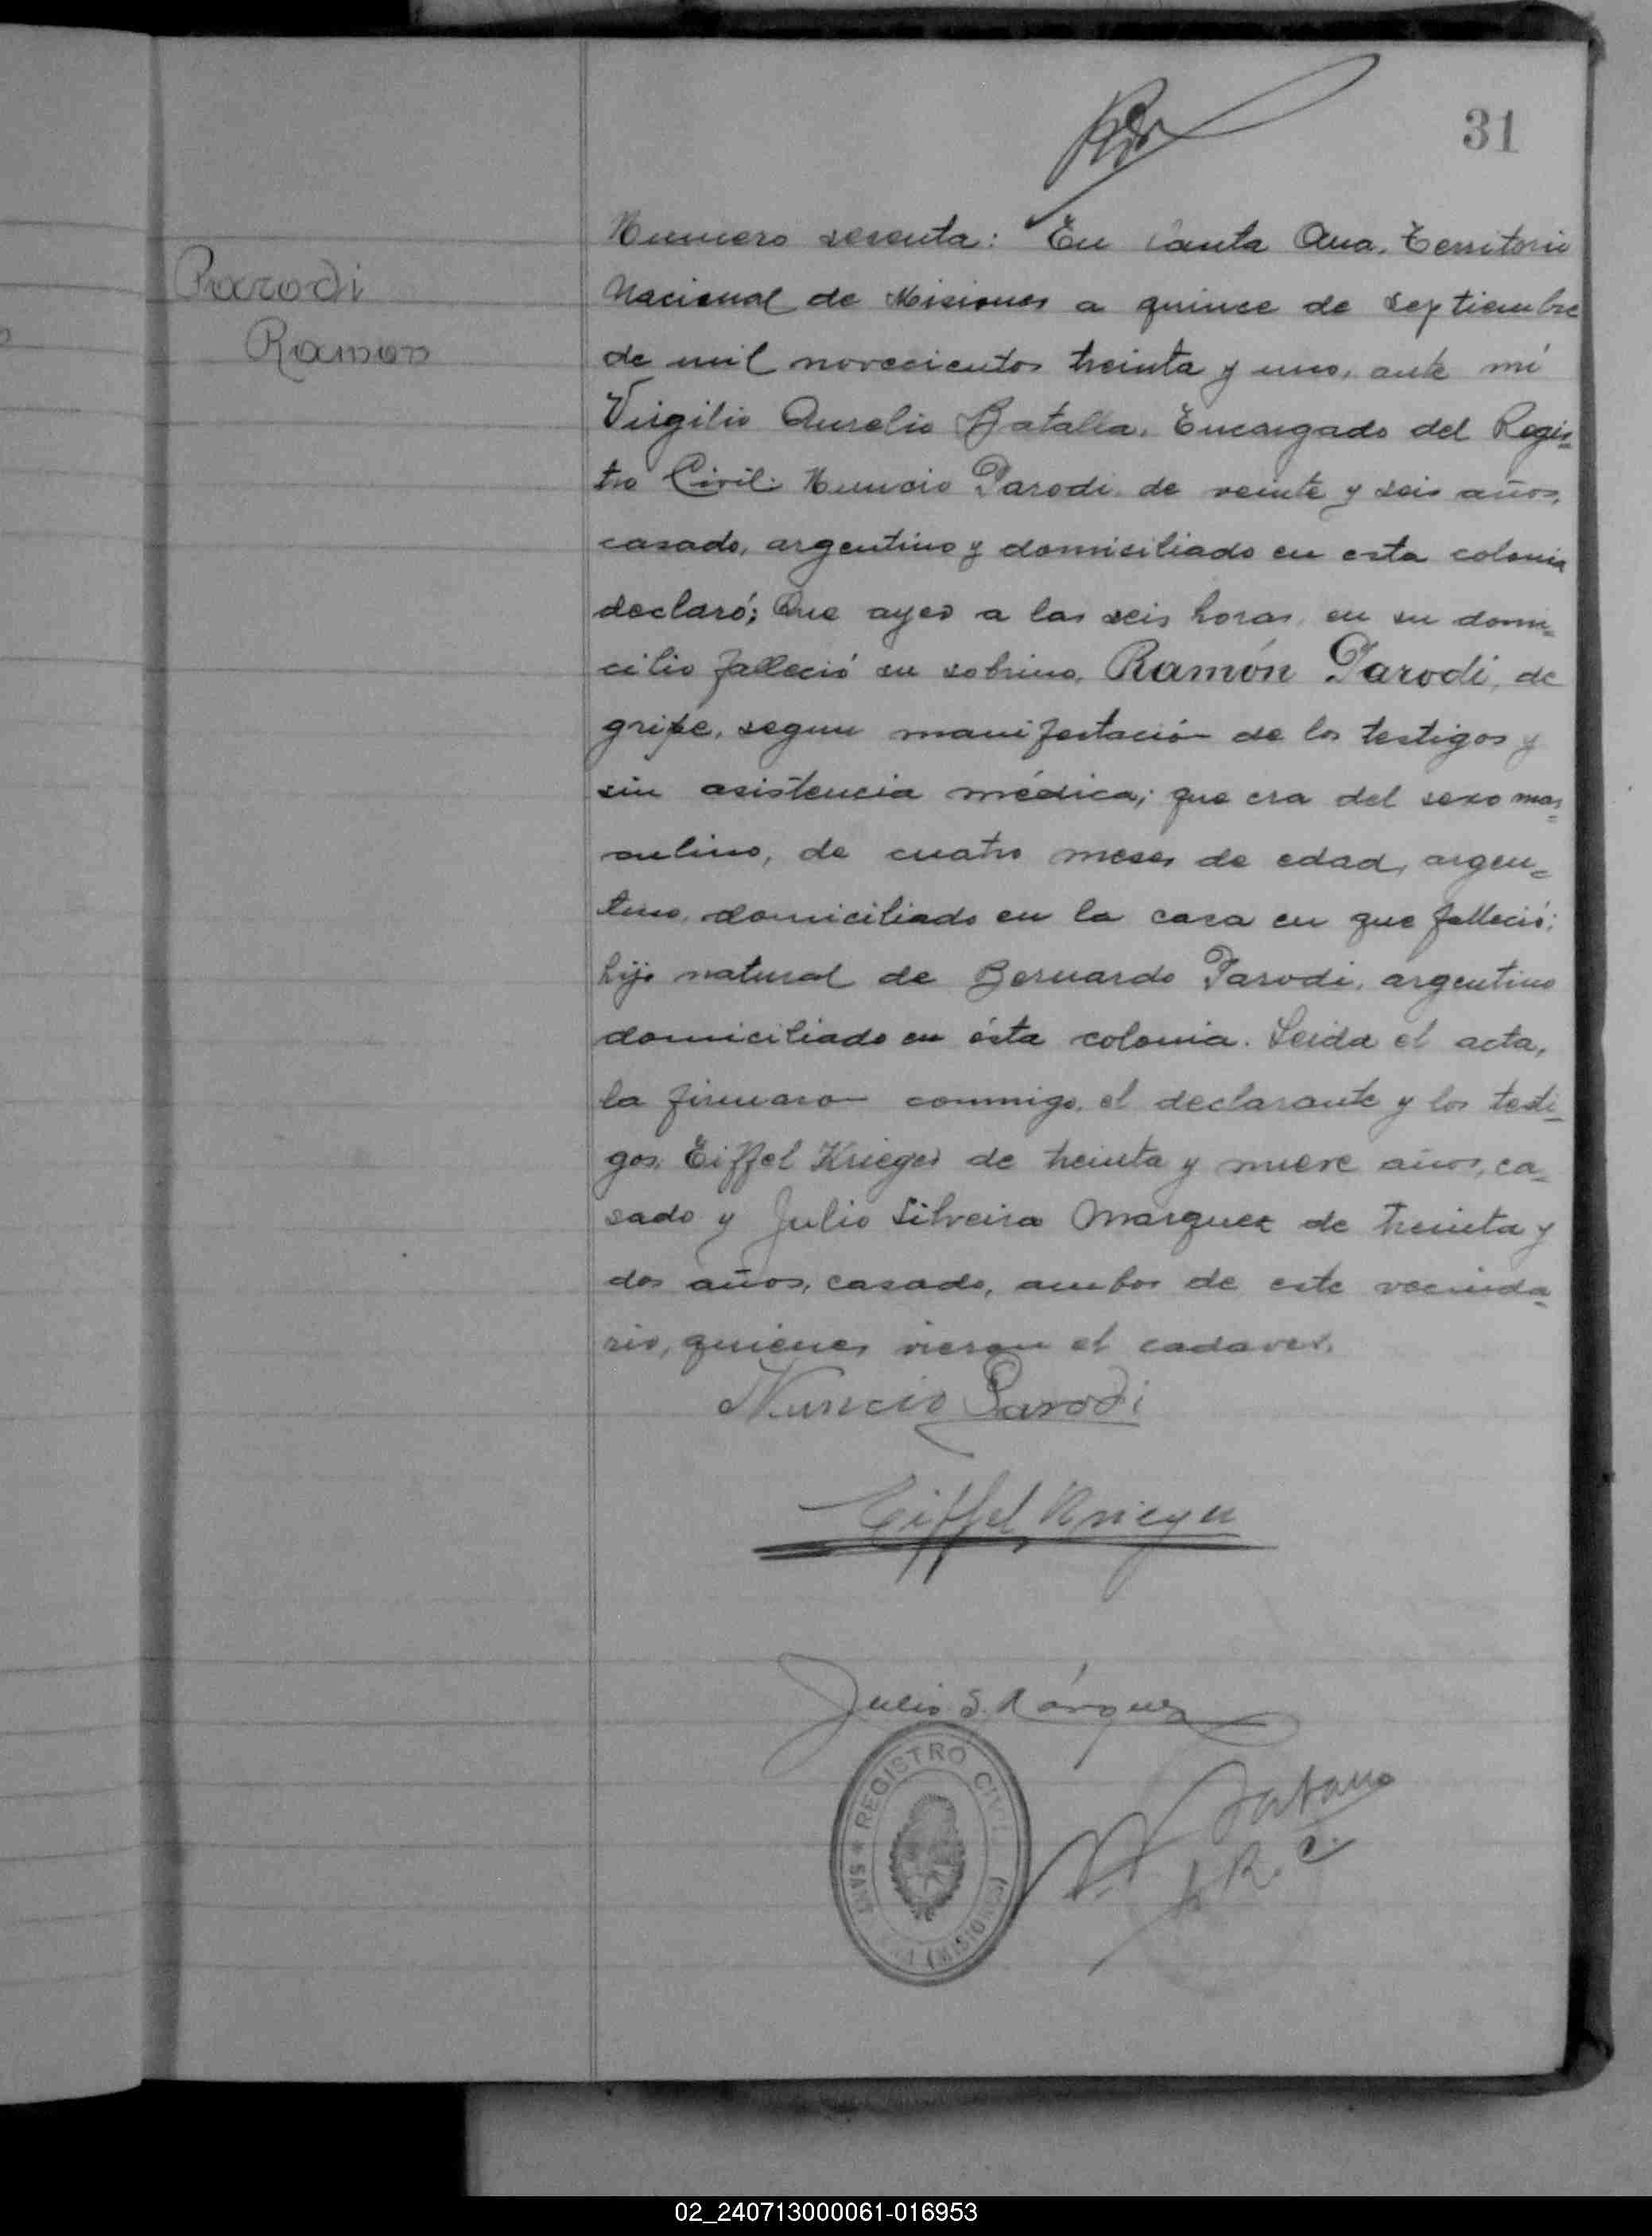 31
Parodi
Ramon
Numero sesenta: En Santa Ana, Territorio
Nacional de Misiones a quince de septiembre
de mil novecientos treinta y uno, ante mí
Virgilio Aurelio Batalla, Encargado del Regis=
tro Civil: Nuncio Parodi, de veinte y seis años,
casado, argentino y domisiliado en esta colonia
declaró; Que ayer a las seis horas, en su domi=
cilio falleció su sobrino, Ramón Parodi, de
gripe, segun manifestación de los testigos y
sin asistencia médica; que era del sexo mas=
culino, de cuatro meses de edad, argen=
tino, domiciliado en la casa en que falleció;
hijo natural de Bernardo Parodi, argentino
domiciliado en ésta colonia. Leida el acta,
la firmaron conmigo, el declarante y los testi=
gos: Eiffel Krieger de treinta y nueve años, ca=
sado y Julio Silveira Marquez de treinta y
dos años, casado, ambos de este vecinda=
rio, quienes vieron el cadaver.
Nuncio Parodi
Eiffel Krieger
Julio S. Márquez
REGISTRO CIVIL
SANTA ANA (MISIONES)
R. C.
02_240713000061-016953